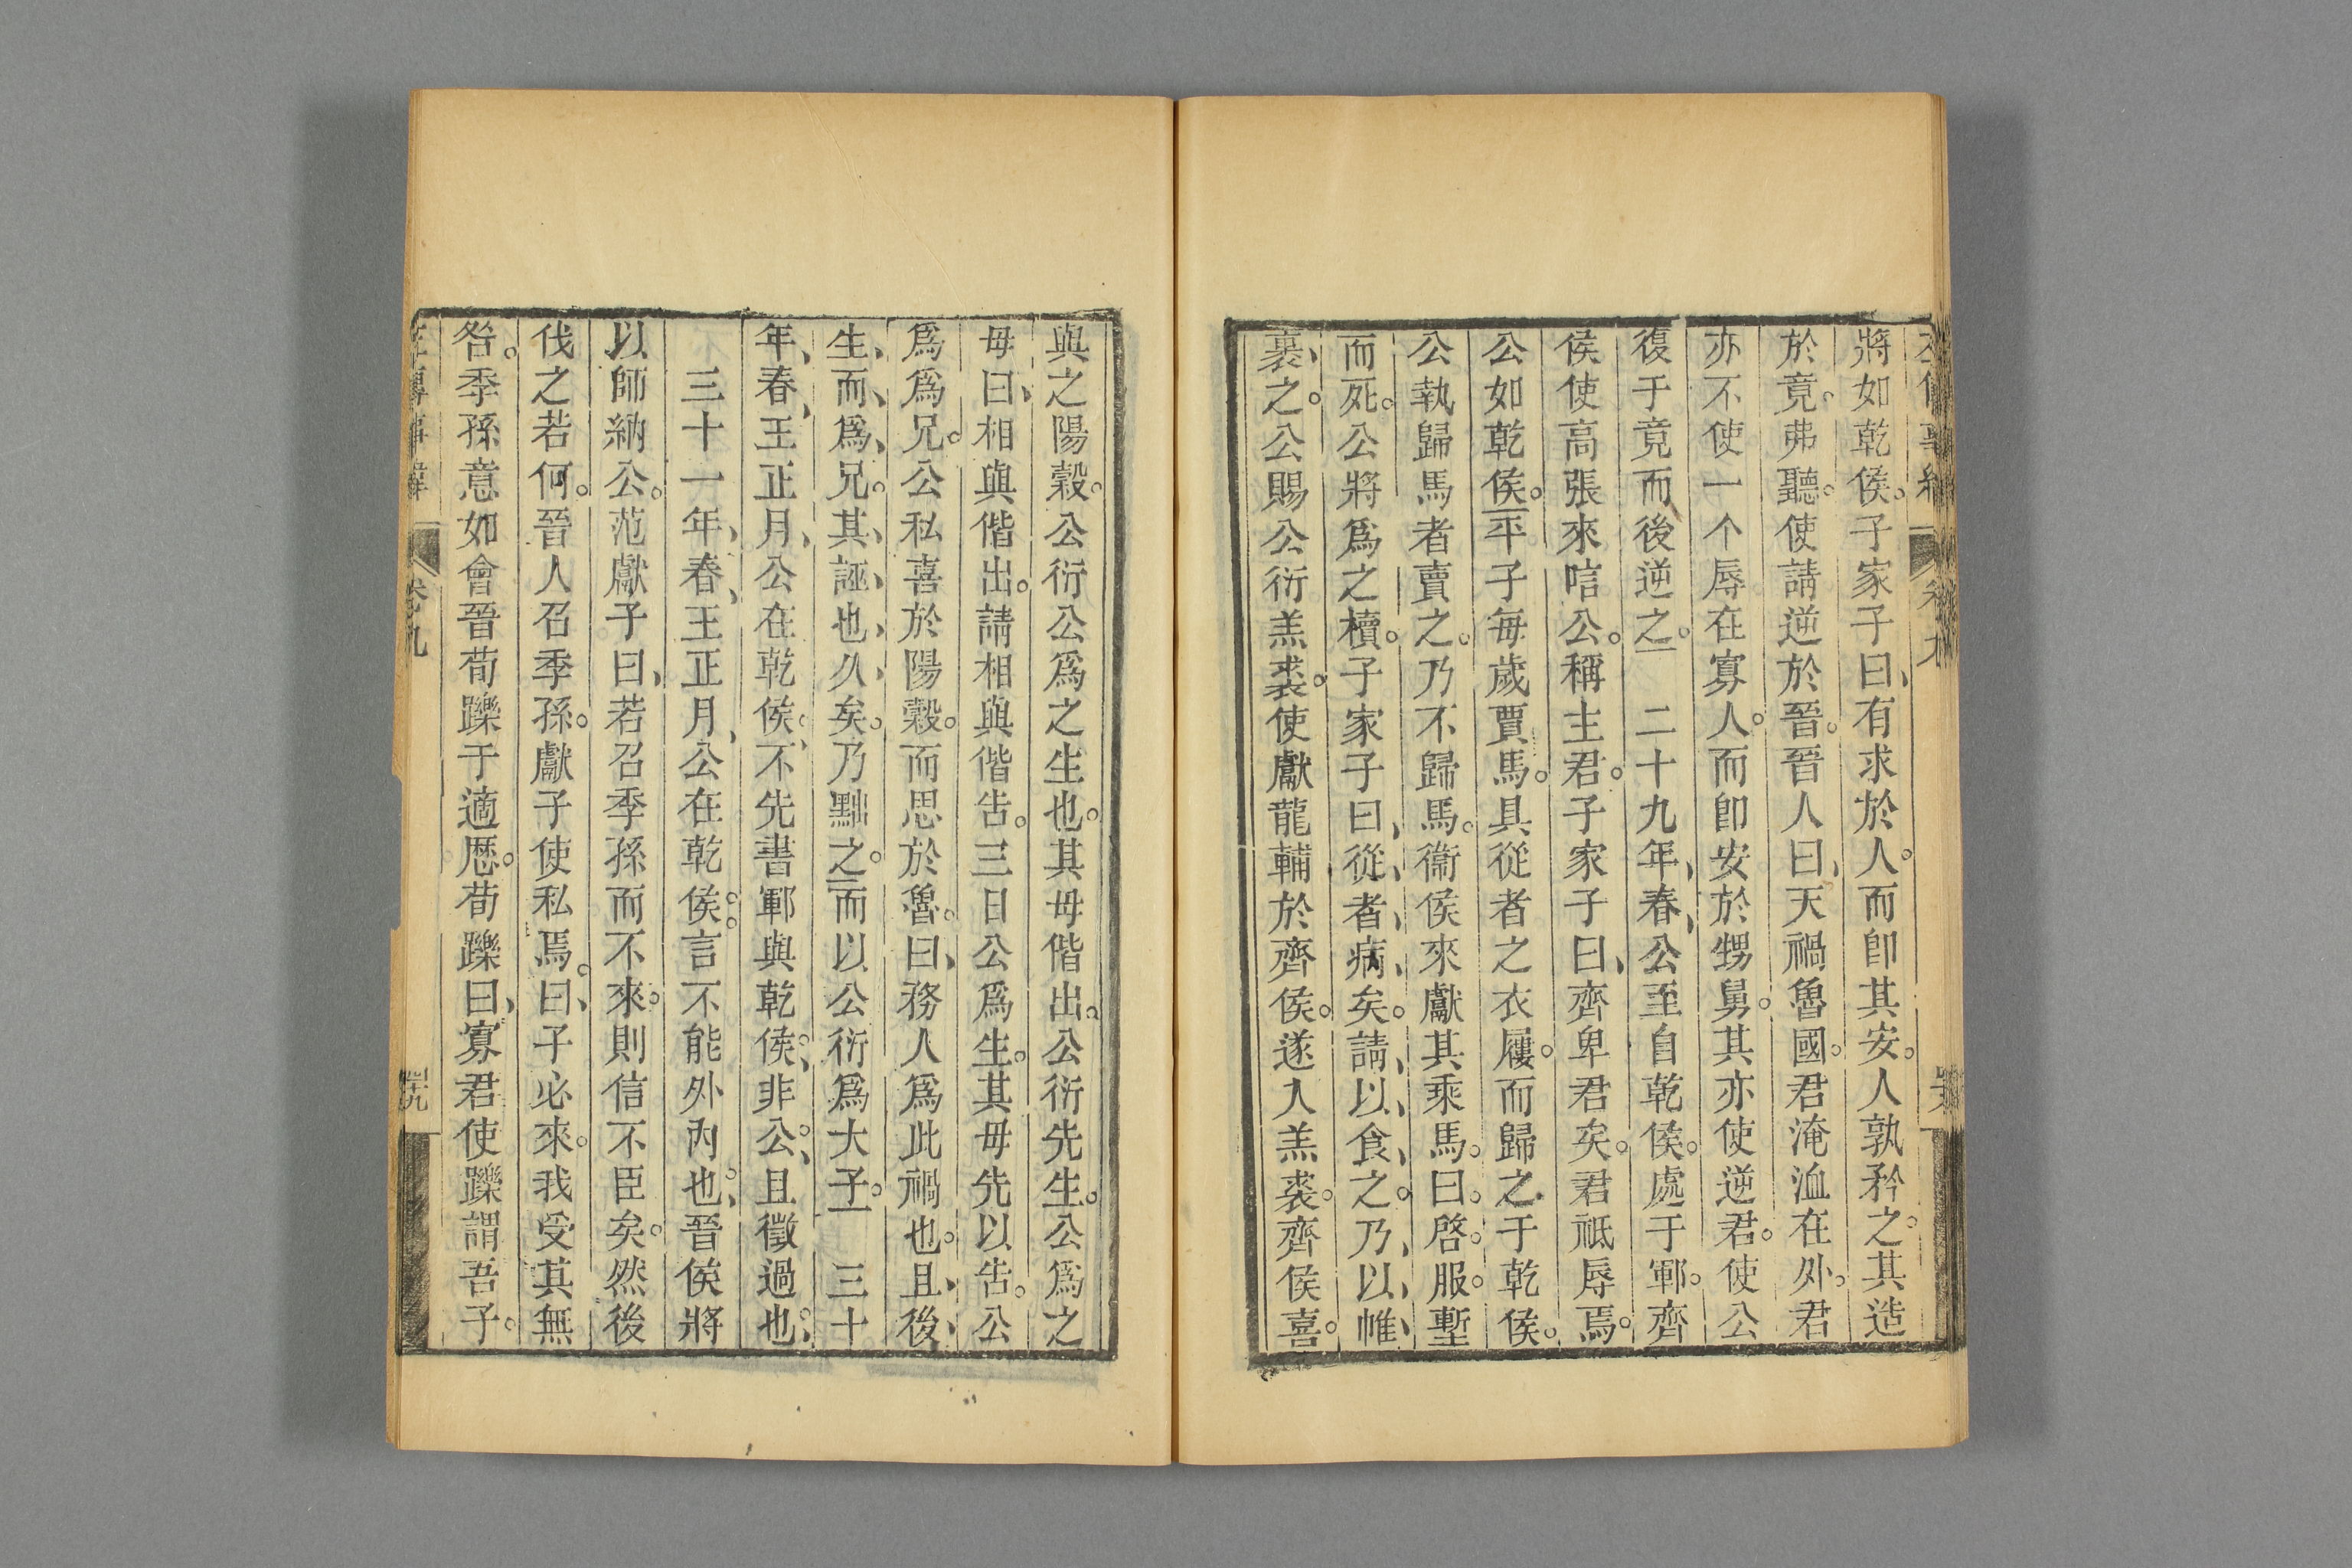 將如乾侯。子家子曰、有求於人。而卽其安。人孰矜之。其造
於竟。弗聽。使請逆於晉。晉人曰、天禍魯國。君淹洫在外。君
亦不使一个辱在寡人。而卽安於甥舅。其亦使逆君。使公
復于竟而後逆之。 二十九年、春、公至自乾侯。處于鄆。齊
侯使高張來唁公。稱主君。子家子曰、齊卑君矣。君祗辱焉。
公如乾侯。平子每歲賈馬。具從者之衣屨。而歸之于乾侯。
公執歸馬者賣之。乃不歸馬。衞侯來獻其乘馬。曰。啓服。塹
而死。公將爲之櫝。子家子曰、從、者、病、矣。請、以、食、之。乃、以、帷、
裹、之。公賜公衍羔裘。使獻龍輔於齊侯。遂入羔裘。齊侯喜。
與之陽穀。公衍公爲之生也。其母偕出。公衍先生。公爲之
母曰、相與偕出。請相與偕告。三日公爲生。其母先以告。公
爲爲兄。公私喜於陽穀。而思於魯。曰、務人爲此禍也。且、後、
生、而、爲、兄。其、誣、也、久、矣。乃黜之。而以公衍爲大子。 三十
年、春、王正月、公在乾侯。不先書鄆與乾侯、非公、且徵過也、
三十一年、春、王正月、公在乾侯。言不能外內也、晉侯將
以師納公。范獻子曰、若召季孫而不來。則信不臣矣。然後
伐之若何。晉人召季孫。獻子使私焉。曰、子必來。我受其無
咎。季孫意如會晉荀躒于適厯。荀躒曰、寡君使躒謂吾子。
卷九